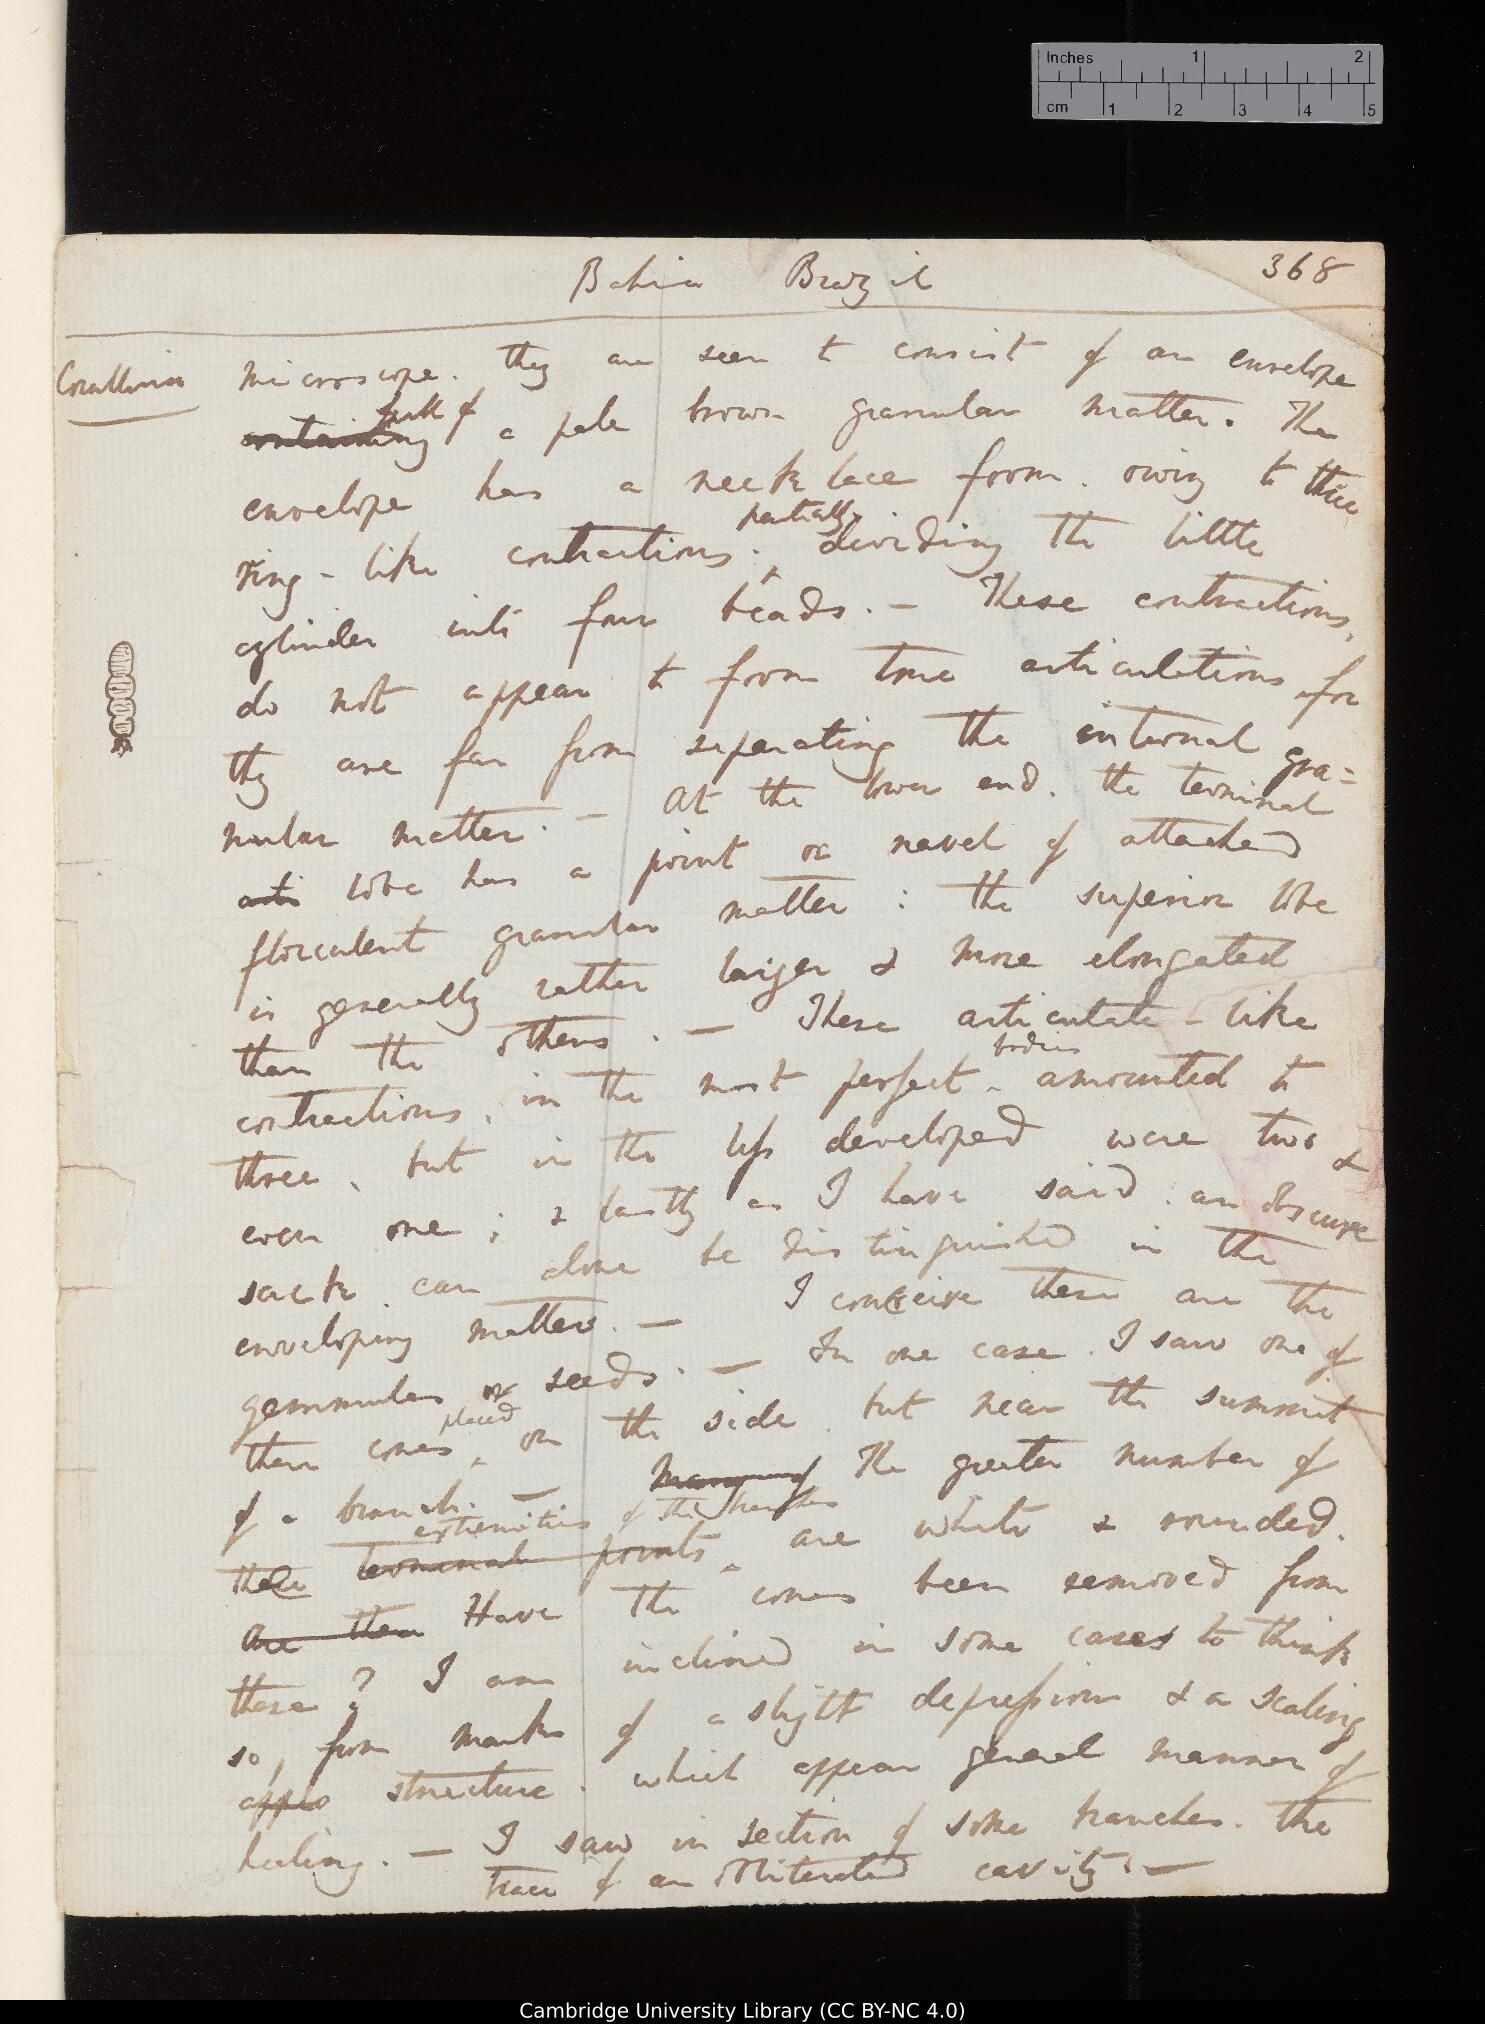 Inches 1 2
cm 1 2 3 4 5
Bahia Brazil 368
Corallina
microscope. they are seen to consist of an envelope
full of
containing a pale brown granular matter. The
envelope has a necklace form. owing to three
partially
ring-like contractions, dividing the little
cylinder into four beads. — These contractions,
do not appear to form true articulations for
they are far from separating the internal gra=
nular matter. — At the lower end. the terminal
arti lobe has a point or navel of attached
flocculent granular matter: the superior lobe
is generally rather larger & more elongated
than the others. — These articulate-like
bodies
contractions, in the most perfect amounted to
three, but in the less developed were two &
even one; & lastly as I have said. an obscure
sack can alone be distinguished in the
enveloping matter. — I conceive these are the
gemmules or seeds. — In one case. I saw one of
placed
these cones on the side. but near the summit
of a branch. — Many of The greater number of
extremities of the branches
these terminal points are white & rounded.
are them Have the cones been removed from
these? I am inclined in some cases to think
so, from marks of a slight depression & a scaling
appeo structure. which appear general manner of
healing. — I saw in section of some branches. the
trace of an obliterated cavity. —
Cambridge University Library (CC BY-NC 4.0)